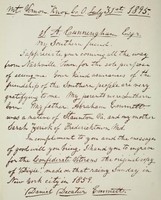 Mt. Vernon, Knox Co. O. July 31st 1895.
S. A. Cunningham Esqr.
My Southern friend.
Suppose to your coming all the way
from Nashville Tenn. for the sole purpose
of seeing me. Your kind remarks of the
friendship of the Southern people, are very
gratifying to me. My parents were southern
born. My father Abraham Emmett
was a native of Staunton Va. and my mother
Sarah Zerick, of Fredericktown Md.
In compliment to you and the message
of good will you bring, I hand you to sign
for the Confederate Veteran the original copy
of Dixie, made on that rainy Sunday in
New York city in 1859.
Daniel Decatur Emmett.